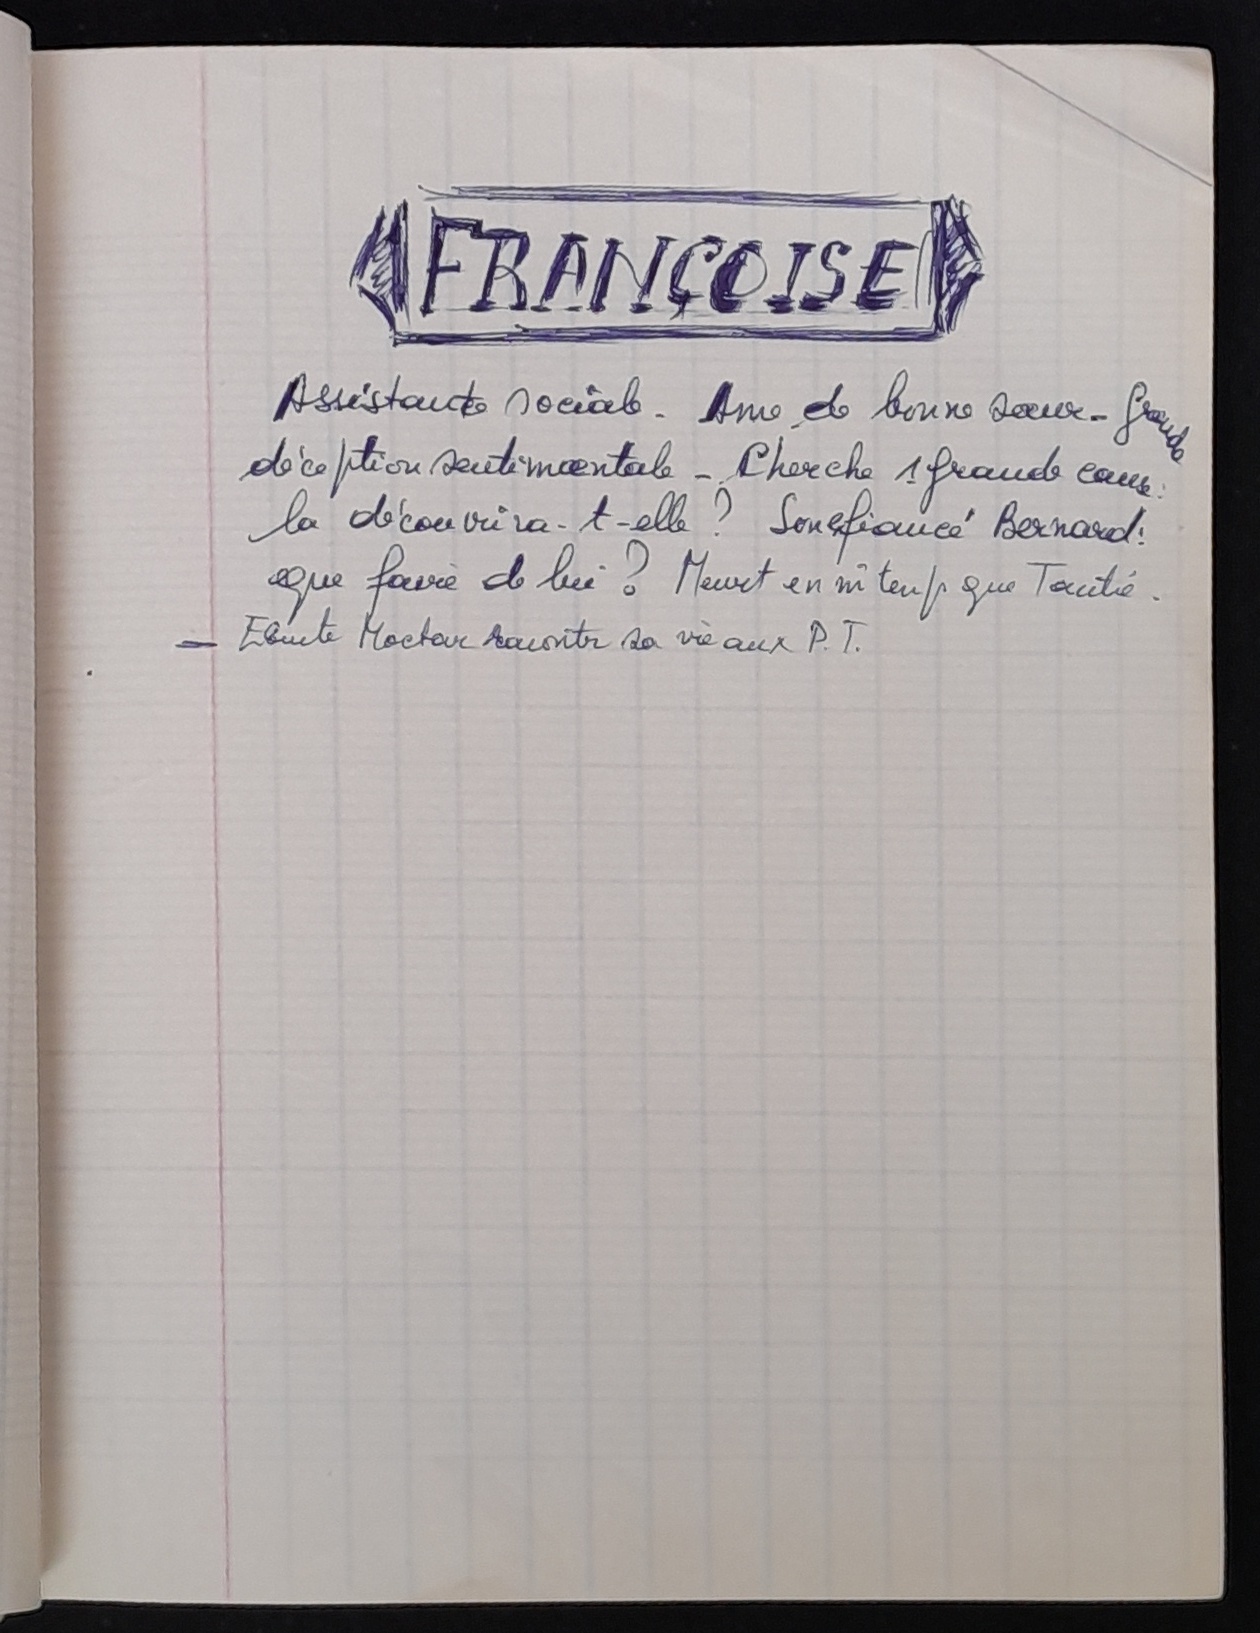 FRANÇOISE
Assistante sociale - Ame de bonne sœur - Grande
déception sentimentale - Cherche 1 grande cause:
la découvrira-t-elle? Son fiancé Bernard:
que faire de lui? Meurt en m̂ temp que Tantié.
- Ecoute Moctar raconter sa vie aux P.T.